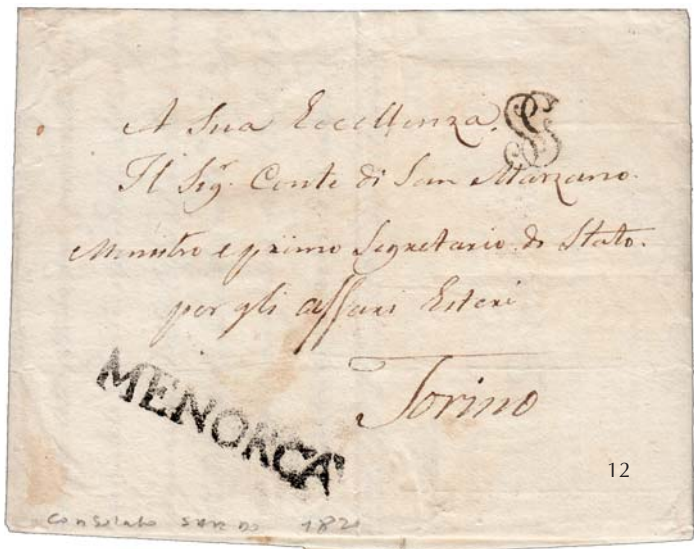 A Sua Eccellenza.
Il Sigr. Conte di San Marzano.
Ministro e primo Segretario di Stato.
per gli affari Esteri
Torino
MENORCA
12
Consolato SARDO 182